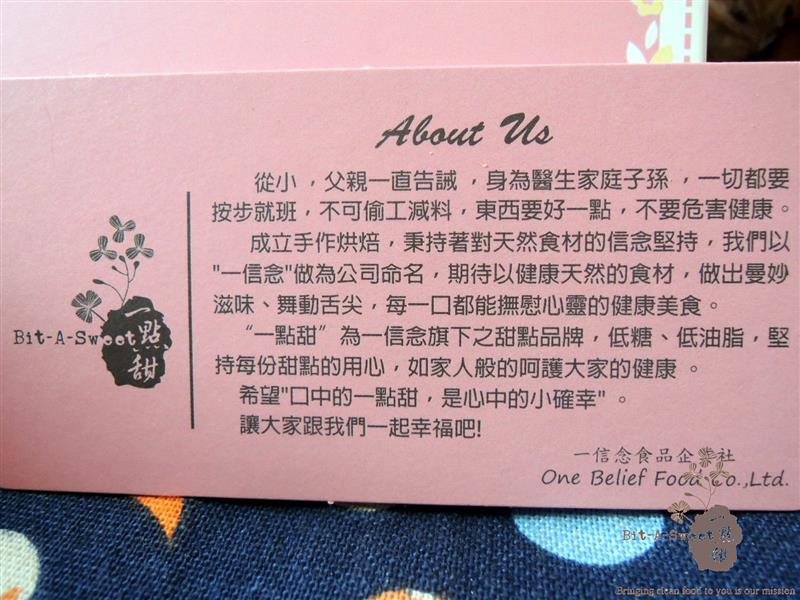 About Us
從小，父親一直告誡，身為醫生家庭子孫，一切都要
按步就班，不可偷工減料，東西要好一點，不要危害健康。
成立手作烘焙，秉持著對天然食材的信念堅持，我們以
"一信念"做為公司命名，期待以健康天然的食材，做出曼妙
滋味、舞動舌尖，每一口都能撫慰心靈的健康美食。
“一點甜”為一信念旗下之甜點品牌，低糖、低油脂，堅
持每份甜點的用心，如家人般的呵護大家的健康。
希望"口中的一點甜，是心中的小確幸"。
讓大家跟我們一起幸福吧!
一信念食品企業社
One Belief Food Co.,Ltd.
Bit-A-Sweet
一點甜
Bit-A-Sweet
一點甜
Bringing clean food to you is our mission